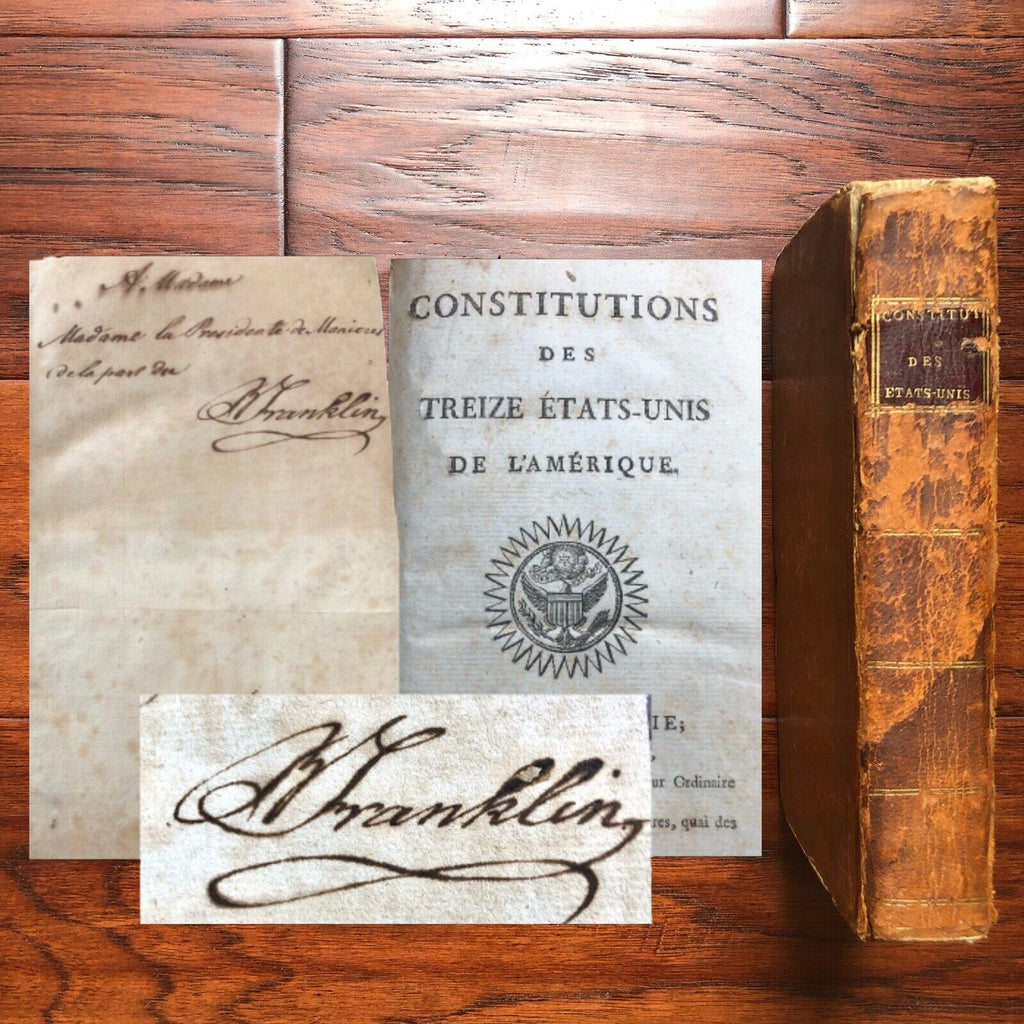 A Madame
Madame la Presidente de Manieres
de la part du
B Franklin
CONSTITUTIONS
DES
TREIZE ÉTATS-UNIS
DE L'AMÉRIQUE.
IE;
ur Ordinaire
res, quai des
B Franklin
CONSTITUT
DES
ETATS-UNIS